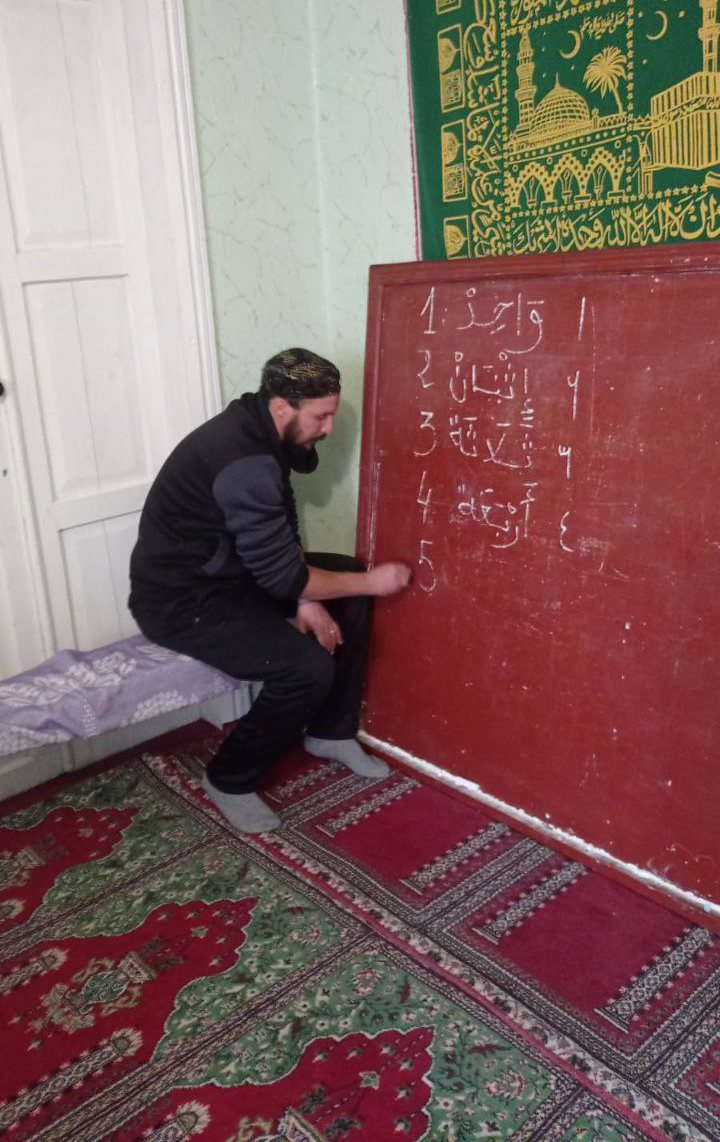 ان لا اله الا الله وحده لا شريك
1. وَاحِدْ ١
2 إِثْنَانْ ٢
3 ثَلَاثَةْ ٣
4 أَرْبَعَه ٤
5